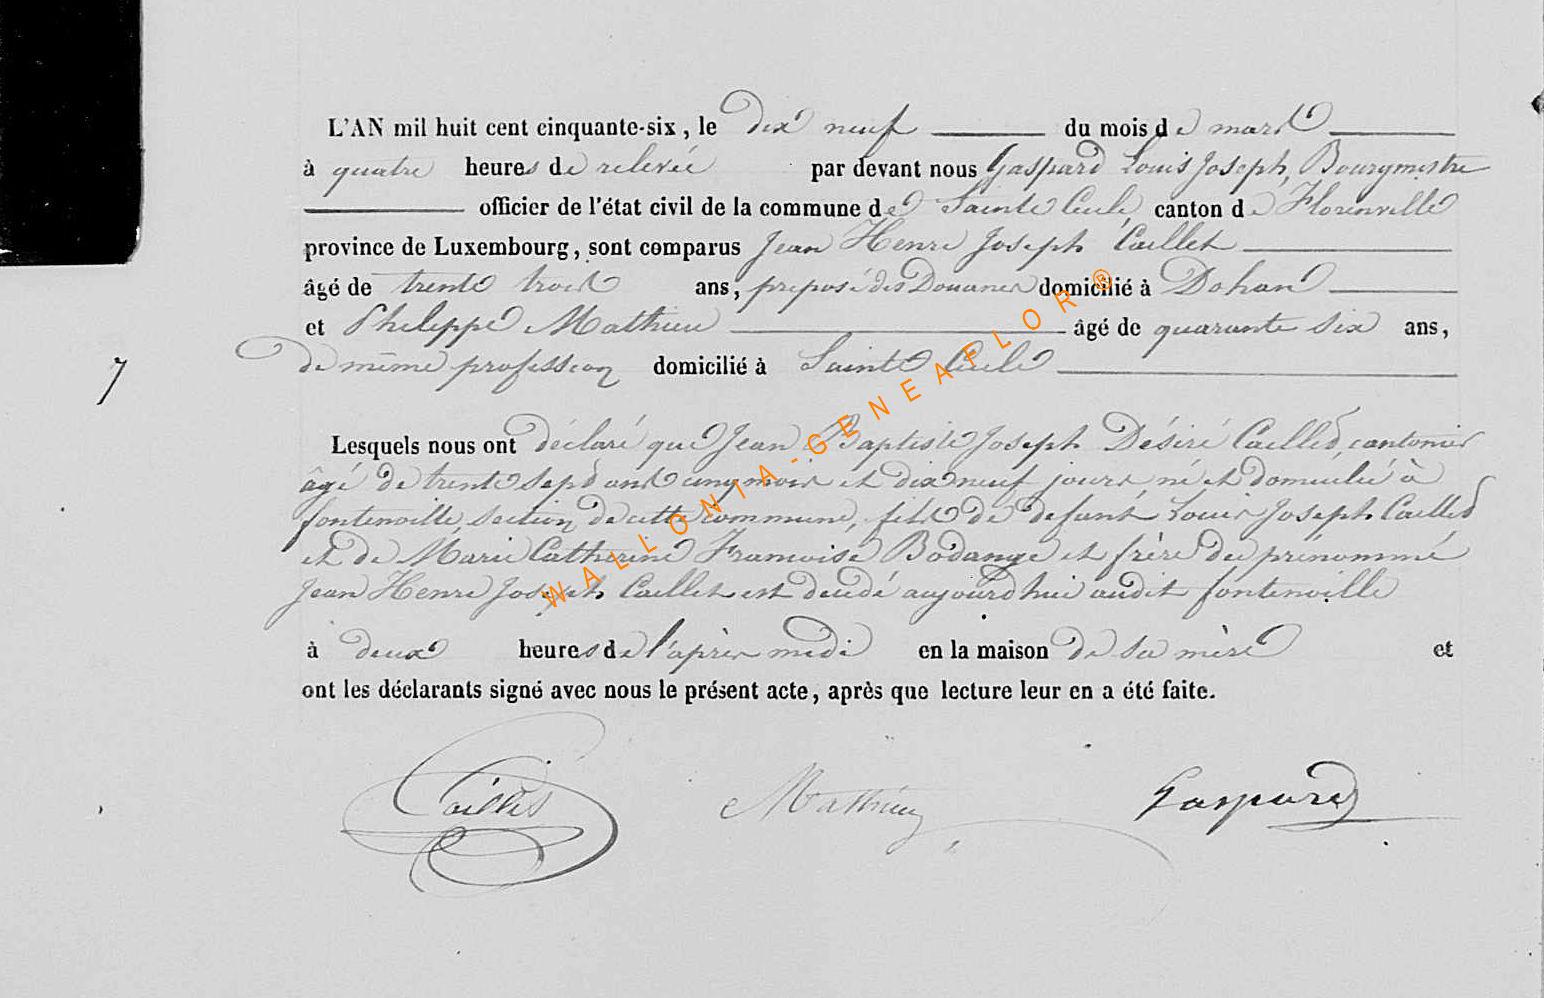 L'AN mil huit cent cinquante-six, le dix neuf du mois de mars
à quatre heures de relevée par devant nous Gaspard Louis Joseph, Bourgmestre
officier de l'état civil de la commune de Sainte Cécile canton de Florenville
province de Luxembourg, sont comparus Jean Henri Joseph Caillet
âgé de trente trois ans, préposé des Douanes domicilié à Dohan
et Philippe Mathieu âgé de quarante six ans,
de même profession domicilié à Sainte Cécile
7
Lesquels nous ont déclaré que Jean Baptiste Joseph Désiré Caillet, cantonier
âgé de trente sept ans cinq mois et dix neuf jours né et domicilié à
fontenoille section de cette commune, fils de defunt Louis Joseph Caillet
et de Marie Catherine Francoise Bodange et frère du prénommé
Jean Henri Joseph Caillet est décédé aujourd'hui audit fontenoille
à deux heures de l'après midi en la maison de sa mère et
ont les déclarants signé avec nous le présent acte, après que lecture leur en a été faite.
Caillet Mathieu Gaspard
WALLONIA-GENEAFLOR®